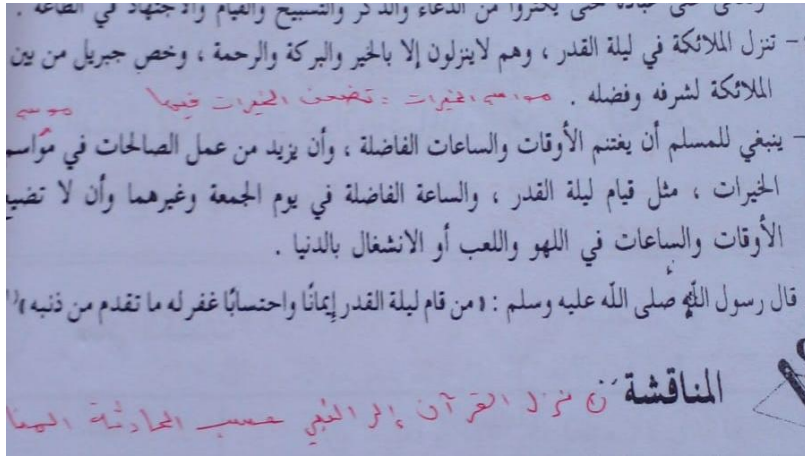 حتى يكثروا من الدعاء والذكر والتسبيح والقيام والاجتهاد في الطاعة .
- تنزل الملائكة في ليلة القدر ، وهم لاينزلون إلا بالخير والبركة والرحمة ، وخص جبريل من بين
الملائكة لشرفه وفضله . مواسم الخيرات : تضعف الخيرات فيها
- ينبغي للمسلم أن يغتنم الأوقات والساعات الفاضلة ، وأن يزيد من عمل الصالحات في مواسم
الخيرات ، مثل قيام ليلة القدر ، والساعة الفاضلة في يوم الجمعة وغيرهما وأن لا تضيع
الأوقات والساعات في اللهو واللعب أو الانشغال بالدنيا .
قال رسول الله صلى الله عليه وسلم : « من قام ليلة القدر إيمانًا واحتسابًا غفر له ما تقدم من ذنبه »
المناقشة نزل القرآن إلى النبي حسب الحادثة